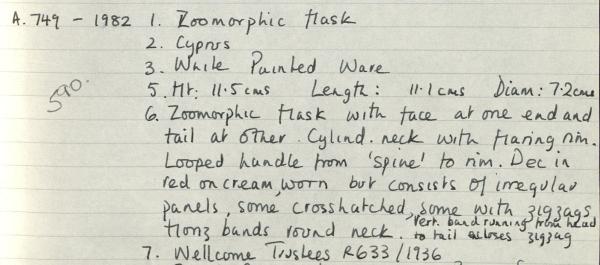 A.749 - 1982 1. Zoomorphic flask
2. Cyprus
3. White Painted Ware
590.
5. Ht: 11.5cms Length: 11.1cms Diam: 7.2cms
6. Zoomorphic flask with face at one end and
tail at other. Cylind. neck with flaring rim.
Looped handle from 'spine' to rim. Dec in
red on cream, worn but consists of irregular
panels, some crosshatched, some with zigzags
Horiz bands round neck. Vert. band running from head
to tail encloses zigzag
7. Wellcome Trustees R633/1936